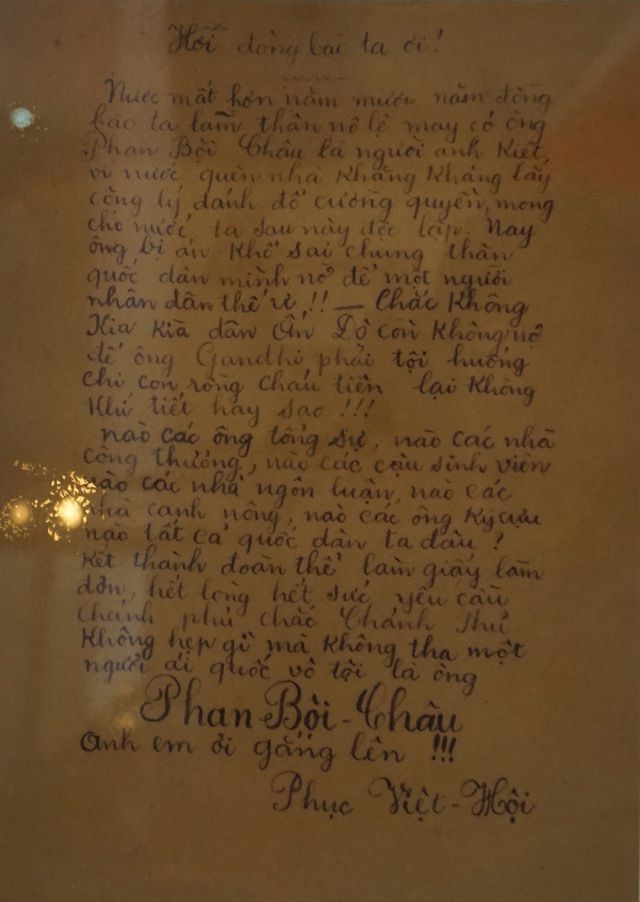 Hỡi đồng bào ta ơi!
Nước mất hơn năm mươi năm đồng
bào ta làm thân nô lệ may có ông
Phan Bội Châu là người anh kiệt,
vì nước quên nhà khăng khăng lấy
công lý đánh đổ cường quyền, mong
cho nước ta sau này độc lập. Nay
ông bị án khổ sai chung thân
quốc dân mình nỡ để một người
nhân dân thế ư !! — Chắc không
Kìa kìa dân Ấn Độ còn không nỡ
để ông Gandhi phải tội huống
chi con rồng cháu tiên lại không
khí tiết hay sao !!!
nào các ông tổng sự, nào các nhà
công thương, nào các cậu sinh viên
nào các nhà ngôn luận, nào các
nhà canh nông, nào các ông kỳ cựu
nào tất cả quốc dân ta đâu ?
Kết thành đoàn thể làm giấy làm
đơn, hết lòng hết sức yêu cầu
chánh phủ chắc Chánh Phủ
không hẹp gì mà không tha một
người ái quốc vô tội là ông
Phan-Bội-Châu
Anh em ơi gắng lên !!!
Phục Việt-Hội